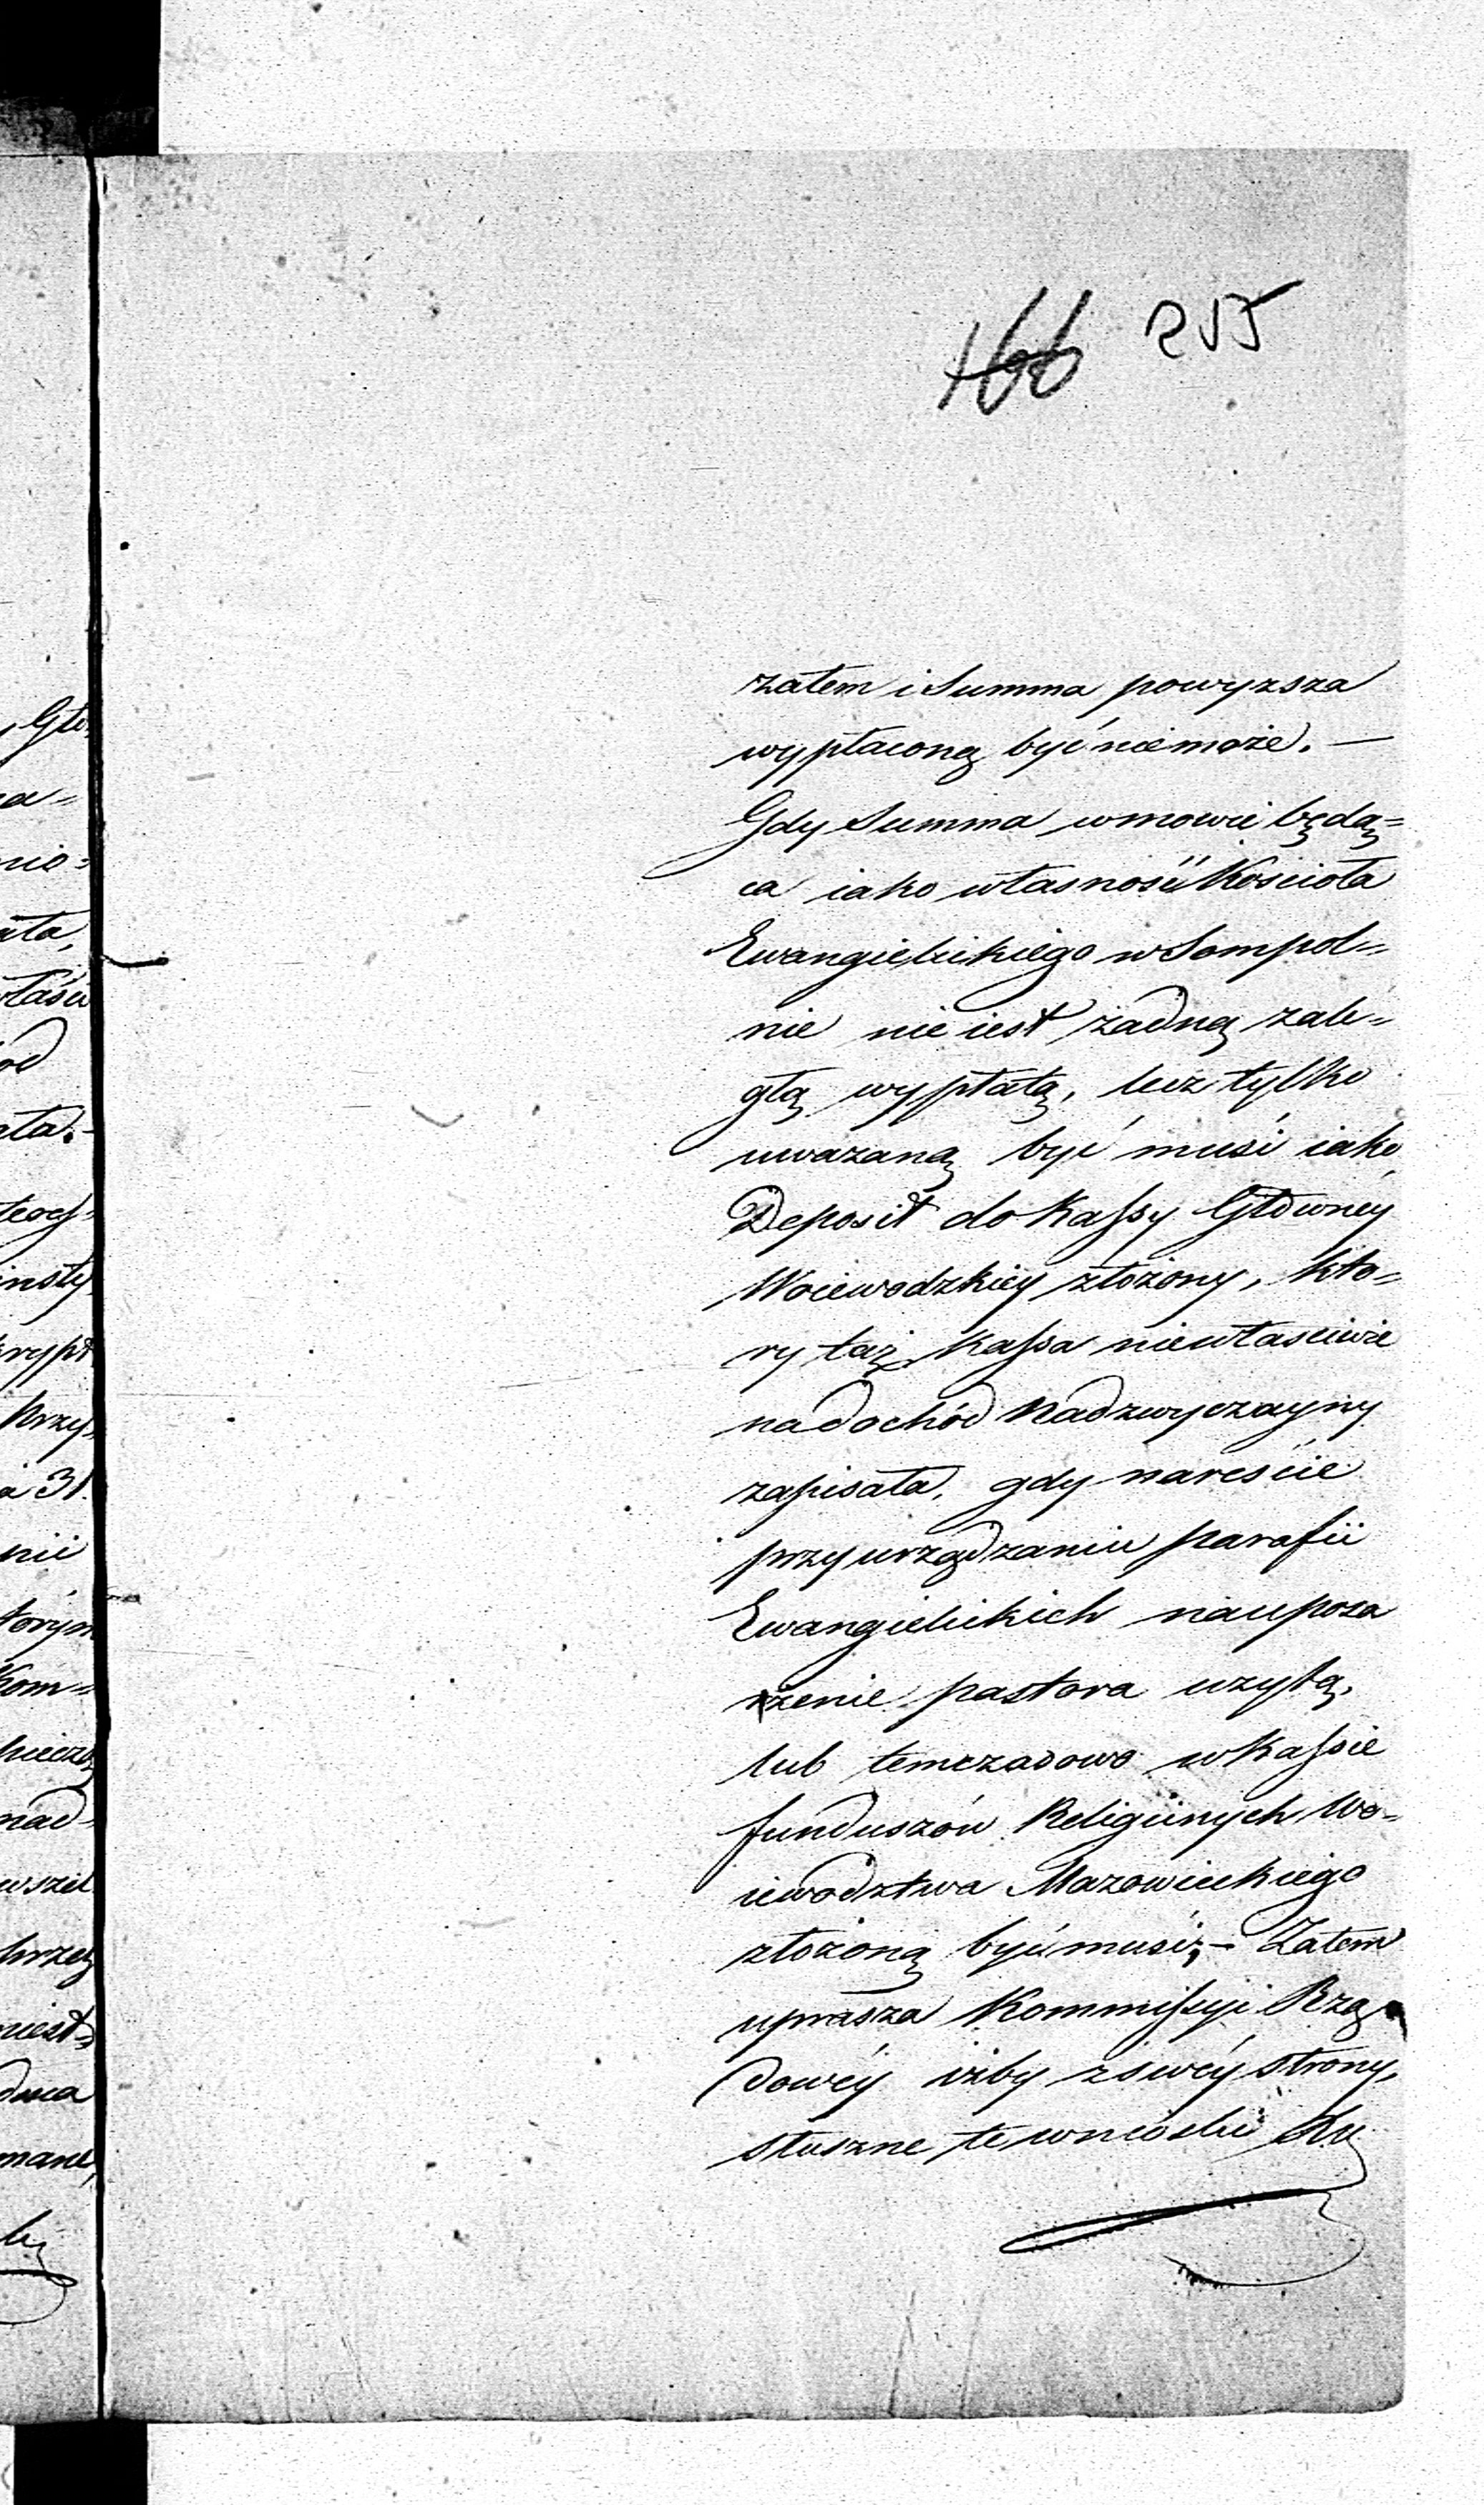 166 215
zatem i Summa powyzsza
wypłaconą być niemoże. —
Gdy Summa wmowie będą=
ca iako własność Kościoła
Ewangielickiego w Sompol=
nie nie iest żadną zale=
głą wypłatą, lecz tylko
uwazaną być musi iako
Deposit do Kassy Główney
Woiewodzkiey złożony, któ=
ry taż Kassa niewłaściwie
na dochód Nadzwyczayny
zapisała, gdy nareście
przy urządzaniu parafii
Ewangielickich na uposa
rzenie pastora uzytą,
lub temczasowo w Kassie
funduszów Religiinych Wo=
iewodztwa Mazowieckiego
złożoną być musi; — Zatem
uprasza Kommissyi Rzą
dowéy iżby z swéy strony,
słuszne te wnioski Ku
, Głó
ca=
nio=
ata,
właśc
od
ata.
insty
krypt
Przy
a 31.
nii
tórym
Kom=
nad=
wszel
przez
niest=